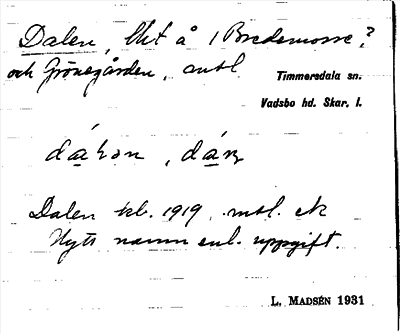 Dalen, lht å 1 Bredemosse?
och Grönegården, mtl
Timmersdala sn.
Vadsbo hd. Skar. l.
Dalen kl. 1919, mtl. ek
Nytt namn enl. uppgift.
L. MADSÉN 1931